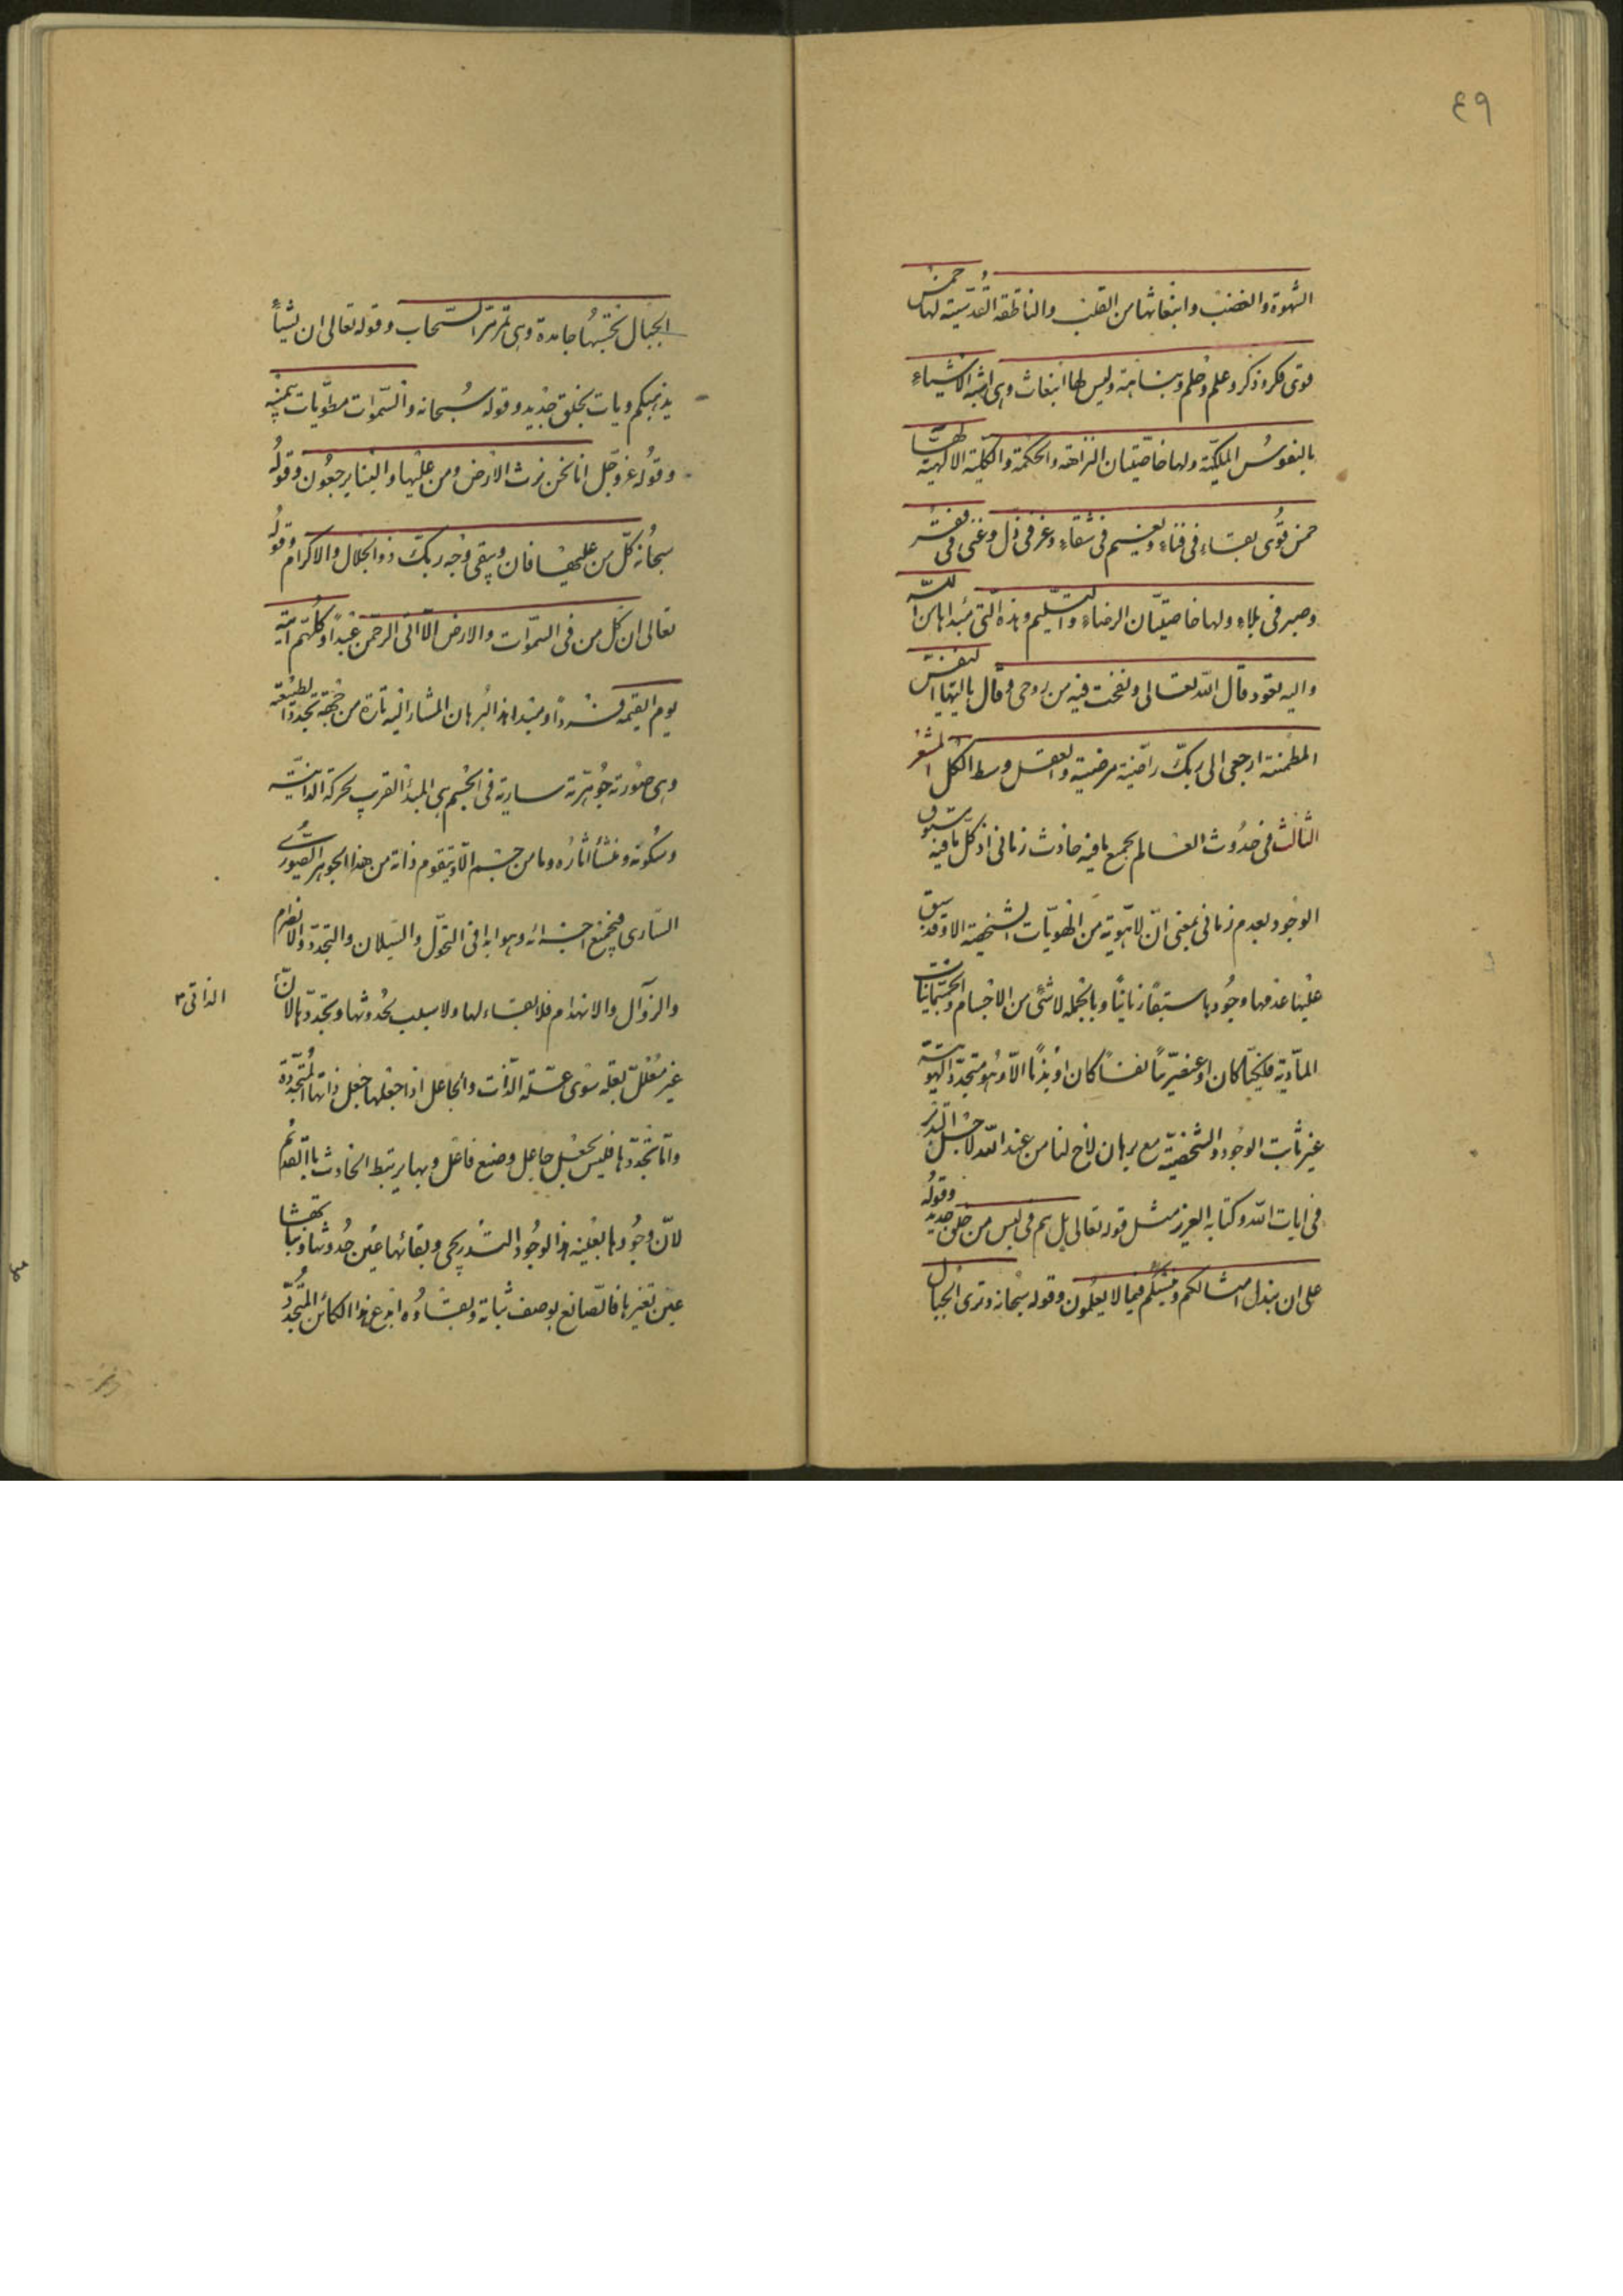 ٤٩
الشهوة والغضب وانبعاثها من القلب والناطقة القدسية لها خمس
قوى فكر وذكر وعلم وحلم ونباهة وليس لها انبعاث وهى اشبه الاشياء
بالنفوس الملكية ولها خاصيتان النزاهة والحكمة والكلية الالهية لها
خمس قوى بقاء فى فناء ونعيم فى شقاء وعز فى ذل وغنى فى فقر
وصبر فى بلاء ولها خاصيتان الرضاء والتسليم وهذه التى مبداها من الله
واليه تعود قال الله تعالى ونفخت فيه من روحى وقال يا ايتها النفس
المطمئنة ارجعى الى ربك راضية مرضية والعقل وسط الكل المشعر
الثالث فى حدوث العالم بجميع ما فيه حادث زمانى اذ كل ما فيه مسبوق
الوجود بعدم زمانى بمعنى ان لا هوية من الهويات الشخصية الا وقد سبق
عليها عدمها وجودها سبقا زمانيا وبالجملة لا شئ من الاجسام والجسمانيات
المادية فلكيا كان او عنصريا نفسا كان او بدنا الا وهو متجدد الهوية
غير ثابت الوجود والشخصية مع برهان لاح لنا من عند الله لاجل التدبر
فى ايات الله وكتابه العزيز مثل قوله تعالى بل هم فى لبس من خلق جديد وقوله
على ان نبدل امثالكم وننشئكم فيما لا يعلمون وقوله سبحانه وترى الجبال
الجبال تحسبها جامدة وهى تمر مر السحاب وقوله تعالى ان يشأ
يذهبكم ويات بخلق جديد وقوله سبحانه والسموات مطويات بيمينه
وقوله عز وجل انا نحن نرث الارض ومن عليها والينا يرجعون وقوله
سبحانه كل من عليها فان ويبقى وجه ربك ذو الجلال والاكرام وقوله
تعالى ان كل من فى السموات والارض الا اتى الرحمن عبدا وكلهم اتيه
يوم القيمة فردا ومبدا هذا البرهان المشار اليه تارة من جهة تجدد الطبيعة
وهى صورة جوهرية سارية فى الجسم هى المبدأ القريب لحركة الذاتية
وسكونه ومنشأ اثاره وما من جسم الا ويتقوم ذاته من هذا الجوهر الصورى
السارى فى جميع اجزائه وهو ابدا فى التحول والسيلان والتجدد والانصرام
والزوال والانهدام فلا بقاء لها ولا سبب لحدوثها وتجددها لان
الذاتى
غير معلل بعلة سوى علة الذات والجاعل اذا جعلها جعل ذاتها المتجددة
واما تجددها فليس بجعل جاعل وصنع فاعل وبها يرتبط الحادث بالقديم
لان وجودها بعينه هذا الوجود التدريجى وبقائها عين حدوثها وثباتها
عين تغيرها فالصانع بوصف ثباته وبقاؤه ابدع هذا الكائن المتجدد